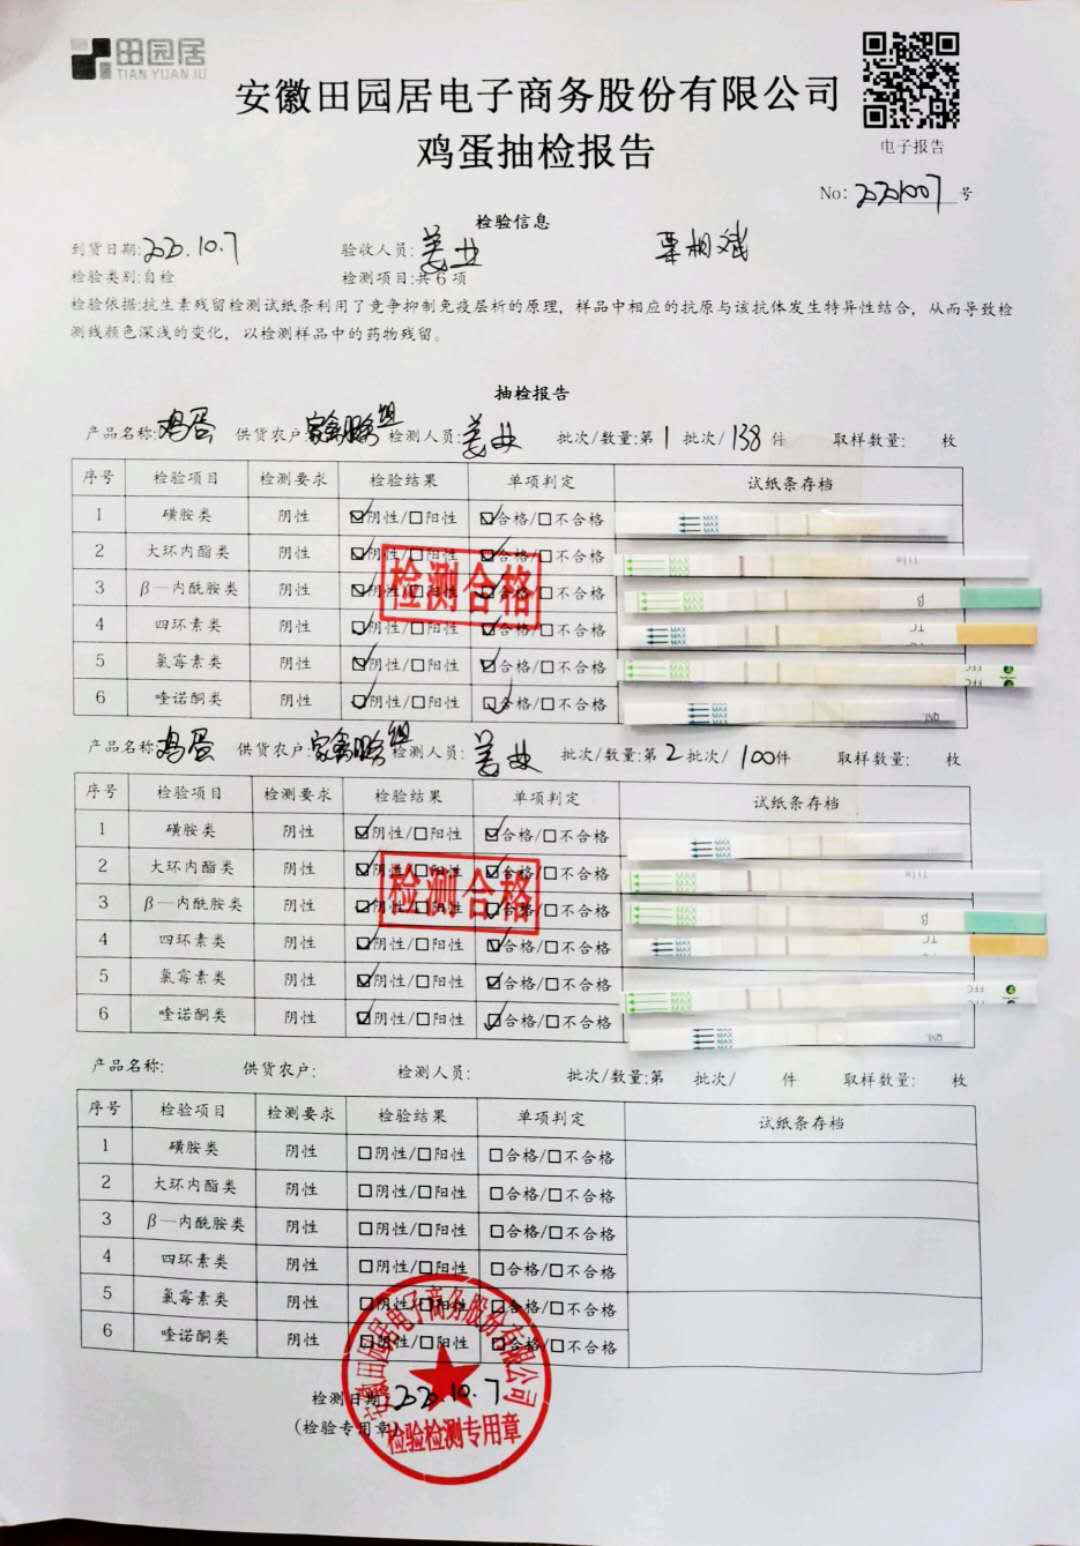 田园居
TIAN YUAN JU
安徽田园居电子商务股份有限公司
鸡蛋抽检报告
电子报告
No: 20201007 号
检验信息
到货日期: 2020.10.7 验收人员: 姜业 栗相斌
检验类别:自检 检测项目:共6项
检验依据:抗生素残留检测试纸条利用了竞争抑制免疫层析的原理，样品中相应的抗原与该抗体发生特异性结合，从而导致检
测线颜色深浅的变化，以检测样品中的药物残留。
抽检报告
产品名称: 鸡蛋 供货农户: 检测人员: 姜业 批次/数量:第1批次/138件 取样数量: 枚
序号 检验项目 检测要求 检验结果 单项判定 试纸条存档
1 磺胺类 阴性 ☑阴性/□阳性 ☑合格/□不合格
2 大环内酯类 阴性 ☑阴性/□阳性 ☑合格/□不合格
3 β—内酰胺类 阴性 ☑阴性/□阳性 ☑合格/□不合格
4 四环素类 阴性 ☑阴性/□阳性 ☑合格/□不合格
5 氯霉素类 阴性 ☑阴性/□阳性 ☑合格/□不合格
6 喹诺酮类 阴性 ☑阴性/□阳性 ☑合格/□不合格
检测合格
MAX
MAX
MAX
产品名称: 鸡蛋 供货农户: 检测人员: 姜业 批次/数量:第2批次/100件 取样数量: 枚
序号 检验项目 检测要求 检验结果 单项判定 试纸条存档
1 磺胺类 阴性 ☑阴性/□阳性 ☑合格/□不合格
2 大环内酯类 阴性 ☑阴性/□阳性 ☑合格/□不合格
3 β—内酰胺类 阴性 ☑阴性/□阳性 ☑合格/□不合格
4 四环素类 阴性 ☑阴性/□阳性 ☑合格/□不合格
5 氯霉素类 阴性 ☑阴性/□阳性 ☑合格/□不合格
6 喹诺酮类 阴性 ☑阴性/□阳性 ☑合格/□不合格
检测合格
MAX
MAX
MAX
产品名称: 供货农户: 检测人员: 批次/数量:第 批次/ 件 取样数量: 枚
序号 检验项目 检测要求 检验结果 单项判定 试纸条存档
1 磺胺类 阴性 □阴性/□阳性 □合格/□不合格
2 大环内酯类 阴性 □阴性/□阳性 □合格/□不合格
3 β—内酰胺类 阴性 □阴性/□阳性 □合格/□不合格
4 四环素类 阴性 □阴性/□阳性 □合格/□不合格
5 氯霉素类 阴性 □阴性/□阳性 □合格/□不合格
6 喹诺酮类 阴性 □阴性/□阳性 □合格/□不合格
检测日期: 2020.10.7
(检验专用章)
安徽田园居电子商务股份有限公司
检验检测专用章